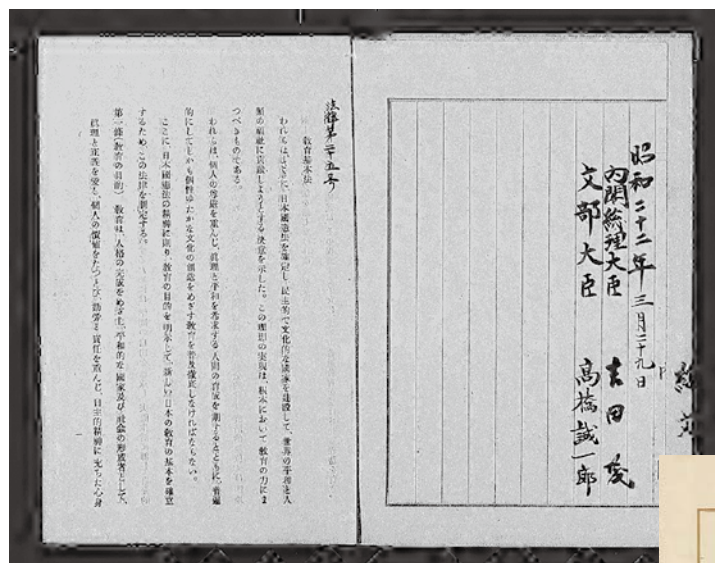 昭和二十二年三月二十九日
内閣総理大臣 吉田茂
文部大臣 高橋誠一郎
法律第二十五号
教育基本法
われらは、さきに、日本國憲法を確定し、民主的で文化的な國家を建設して、世界の平和と人
類の福祉に貢献しようとする決意を示した。この理想の実現は、根本において教育の力にま
つべきものである。
われらは、個人の尊厳を重んじ、眞理と平和を希求する人間の育成を期するとともに、普遍
的にしてしかも個性ゆたかな文化の創造をめざす教育を普及徹底しなければならない。
ここに、日本國憲法の精神に則り、教育の目的を明示して、新しい日本の教育の基本を確立
するため、この法律を制定する。
第一條(教育の目的) 教育は、人格の完成をめざし、平和的な國家及び社会の形成者として、
眞理と正義を愛し、個人の價値をたつとび、勤労と責任を重んじ、自主的精神に充ちた心身